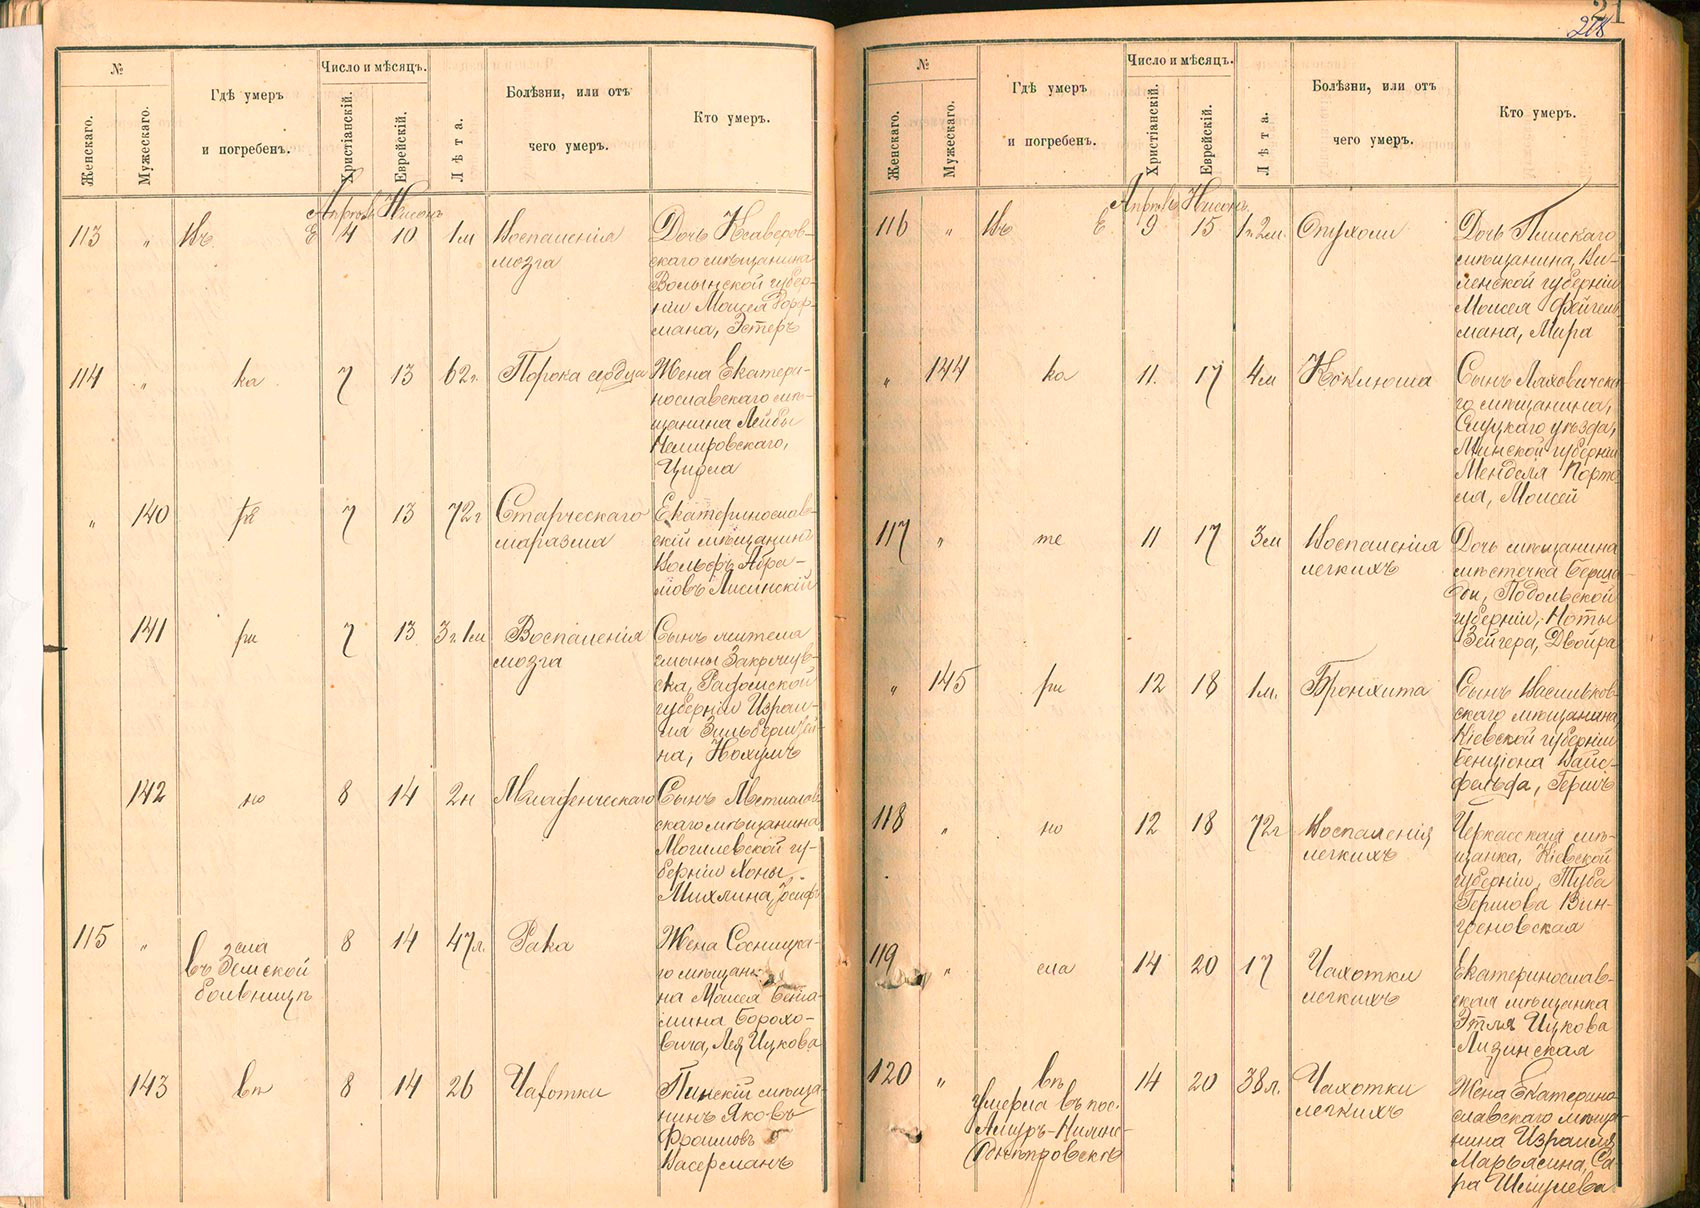 №
Число и мѣсяцъ.
Женскаго.
Мужескаго.
Гдѣ умеръ
и погребенъ.
Христіанскій.
Еврейскій.
Лѣта.
Болѣзни, или отъ
чего умеръ.
Кто умеръ.
Апрѣль Нисонъ
113 " Въ Е 4 10 1м Воспаленія
мозга
Дочь Ксаверов-
скаго мѣщанина
Волынской губер-
ніи Моисея Горф-
мана, Эстеръ
114 " ка 7 13 62г. Порока сердца
Жена Екатери-
нославскаго мѣ-
щанина Лейбы
Немировскаго,
Ципа
" 140 7 13 72г Старческаго
маразма
Екатеринослав-
скій мѣщанинъ
Вольфъ Абра-
мовъ Лисинскій
141 ри 7 13 3г.1м Воспаленія
мозга
Сынъ жителя
Радомской
губерніи Израи-
ля Зильберштей-
на, Нохумъ
142 но 8 14 2н Младенческаго
Сынъ Мстислав-
скаго мѣщанина
Могилевской гу-
берніи Хоны
Михлина, Іосифъ
115 " сла
въ Земской
больницѣ
8 14 47л. Рака
Жена Сосницка-
го мѣщан-
на Моисея Беніа-
мина Борохо-
вича, Лея Ицкова
143 вп 8 14 26 Чахотки
Пинскій мѣща-
нинъ Яковъ
Фроимовъ
Васерманъ
21
218
№
Число и мѣсяцъ.
Женскаго.
Мужескаго.
Гдѣ умеръ
и погребенъ.
Христіанскій.
Еврейскій.
Лѣта.
Болѣзни, или отъ
чего умеръ.
Кто умеръ.
Апрѣль Нисонъ
116 " Въ Е 9 15 1г.2м. Опухоли
Дочь Пинскаго
мѣщанина, Ви-
ленской губерніи
Моисея Фейгель-
мана, Мира
" 144 ка 11. 17 4м Коклюша
Сынъ Ляховичска-
го мѣщанина,
Слуцкаго уѣзда,
Минской губерніи
Менделя Порто-
ля, Моисей
117 " те 11 17 3м Воспаленія
легкихъ
Дочь мѣщанина
мѣстечка Берша-
ди, Подольской
губерніи, Ноты
Зейгера, Двойра
" 145 ри 12 18 1м. Бронхита
Сынъ Васильков-
скаго мѣщанина
Кіевской губерніи
Бенціона Вайс-
фельда, Гершъ
118 " но 12 18 72г Воспаленія
легкихъ
Черкасская мѣ-
щанка, Кіевской
губерніи, Туба
Гершова Вин-
греновская
119 " сла 14 20 17 Чахотки
легкихъ
Екатеринослав-
ская мѣщанка
Этля Ицкова
Лизинская
120 " вп
умерла въ пос.
Амуръ-Нижне-
Днѣпровскъ
14 20 38л. Чахотки
легкихъ
Жена Екатерино-
славскаго мѣща-
нина Израиля
Марьясина, Са-
ра Шмулева